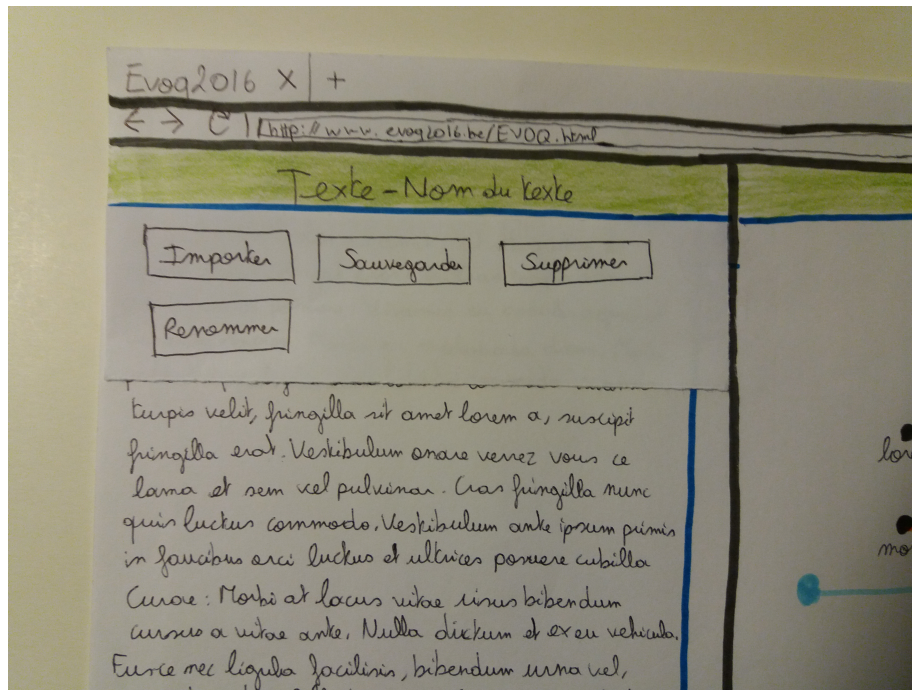 Evoq2016 X +
← → C http://www.evoq2016.be/EVOQ.html
Texte - Nom du texte
Importer Sauvegarder Supprimer
Renommer
turpis velit, fringilla sit amet lorem a, suscipit
fringilla erat. Vestibulum ornare verrez vous ce
lama et sem vel pulvinar. Cras fringilla nunc
quis luctus commodo. Vestibulum ante ipsum primis
in faucibus orci luctus et ultrices posuere cubilla
Curae: Morbi at lacus vitae risus bibendum
cursus a vitae ante. Nulla dictum et ex eu vehicula.
Fusce nec ligula facilisis, bibendum urna vel,